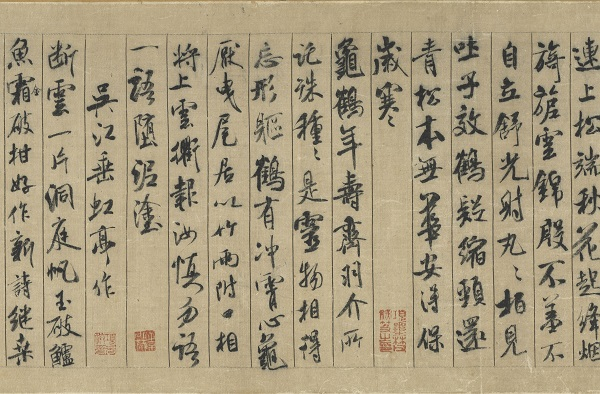 連上松端秋花起絳烟
旖旎雲錦殷不羞不
自立舒光射丸々柏見
吐子效鶴疑縮頸還
青松本無華安得保
歲寒
龜鶴年壽齊羽介所
託殊種々是靈物相得
忘形軀鶴有冲霄心龜
厭曳尾居以竹兩附口相
將上雲衢報汝慎勿語
一語墮泥塗
吳江垂虹亭作
断雲一片洞庭帆玉破鱸
魚霜金破柑好作新詩継桑